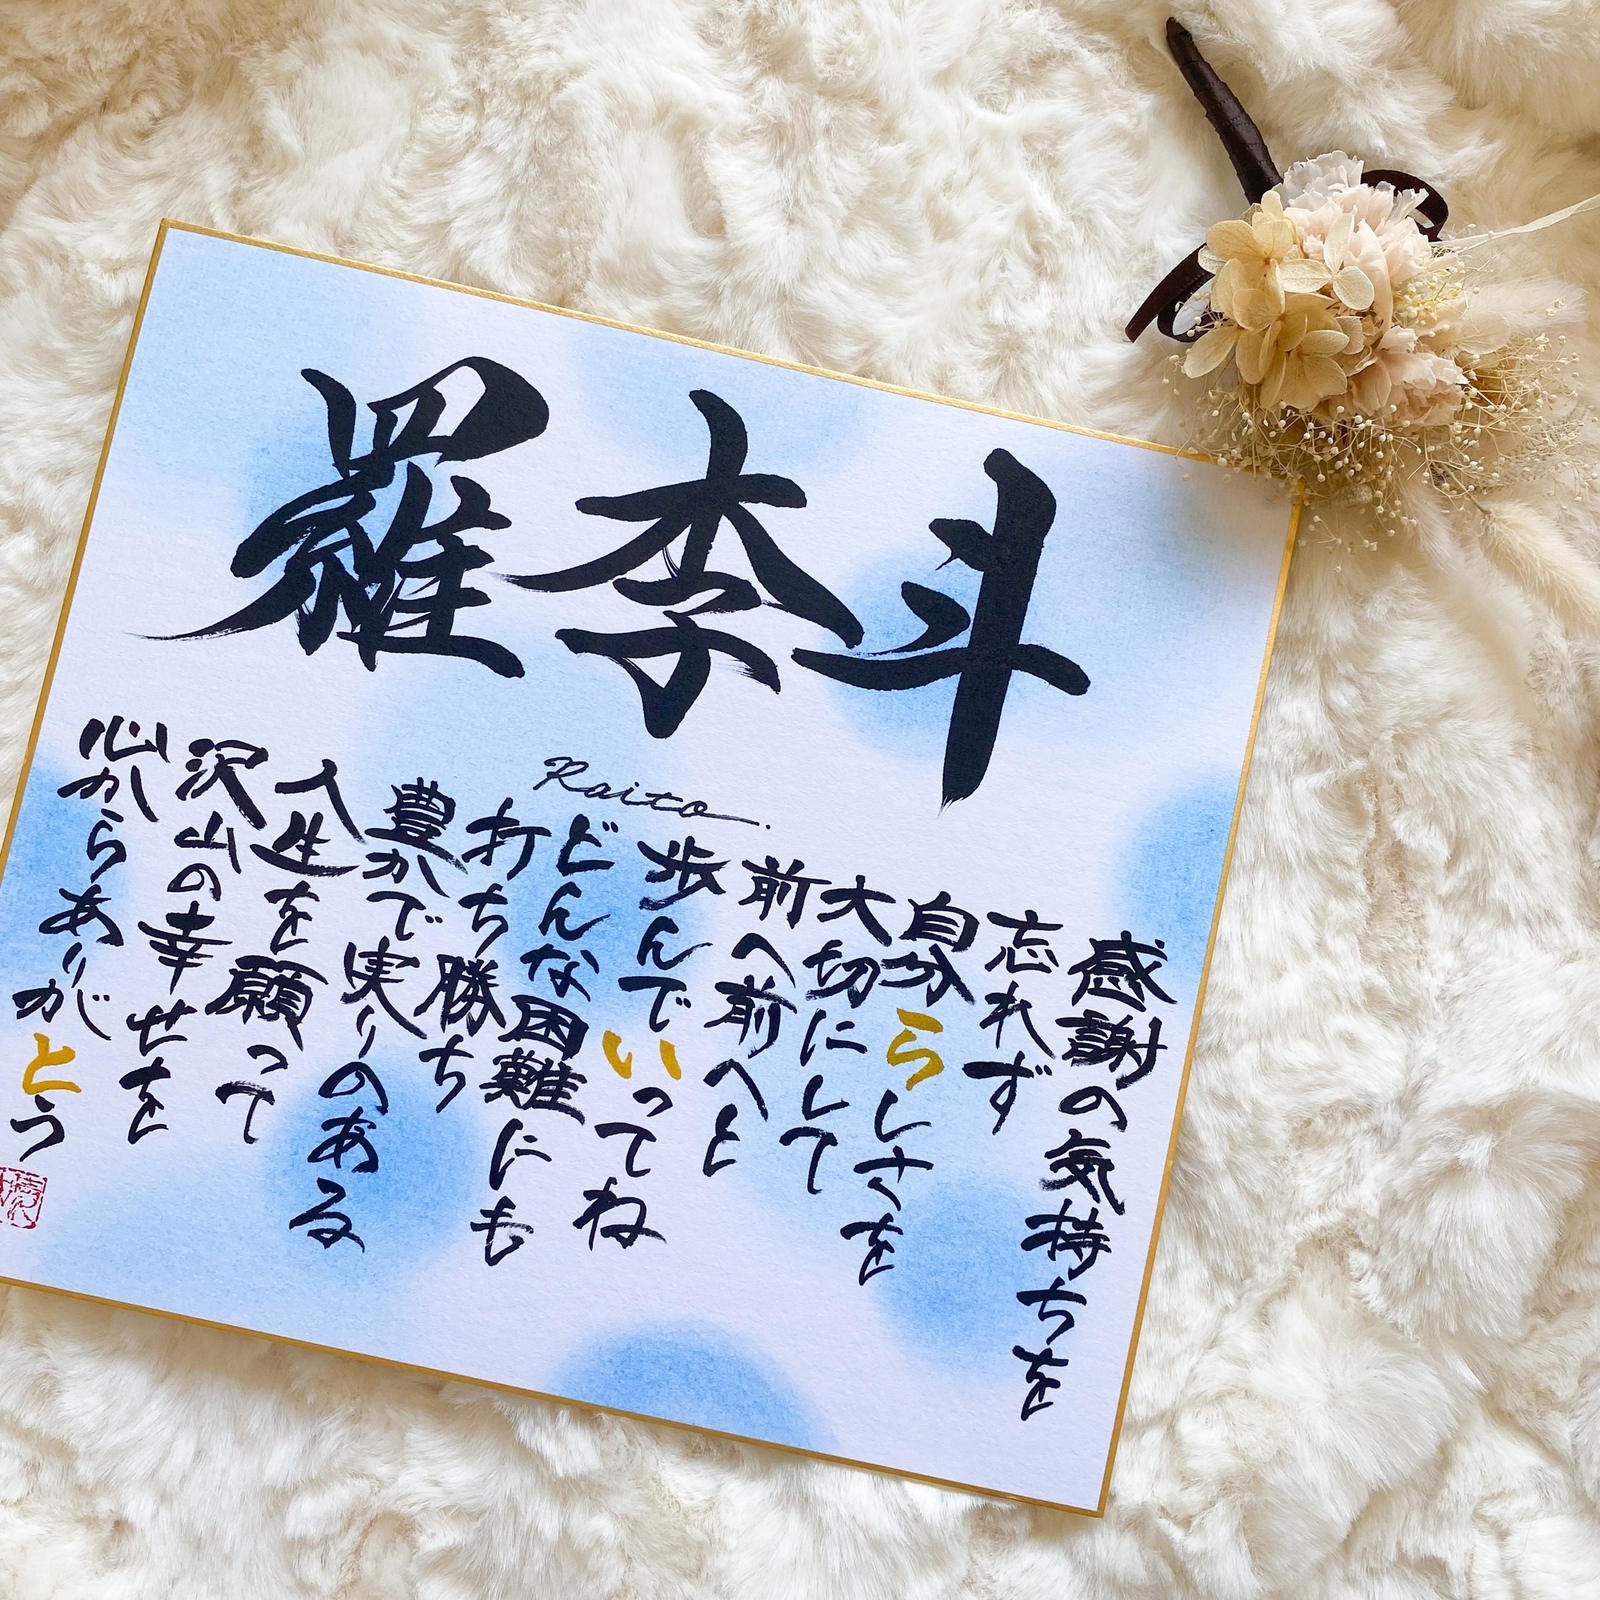 羅李斗
Raito.
感謝の気持ちを
忘れず
自分らしさを
大切にして
前へ前へと
歩んでいってね
どんな困難にも
打ち勝ち
豊かで実りのある
人生を願って
沢山の幸せを
心からありがとう